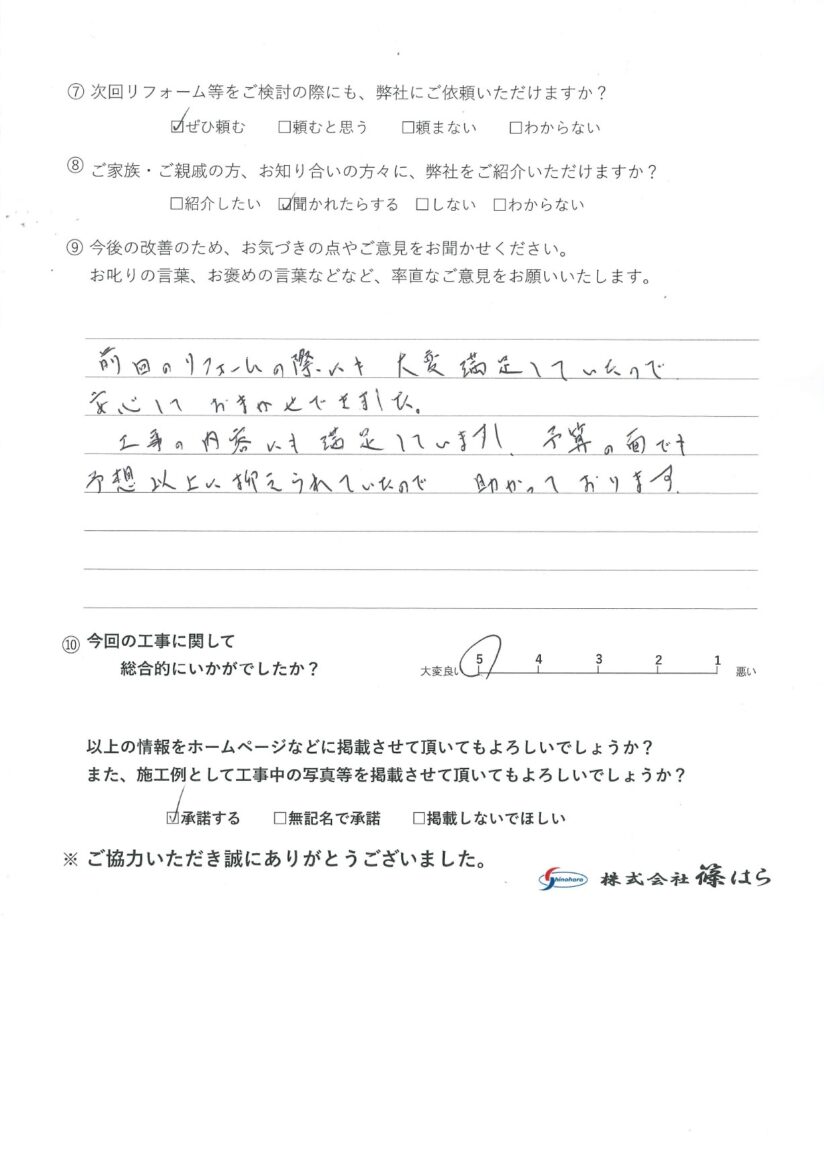 ⑦ 次回リフォーム等をご検討の際にも、弊社にご依頼いただけますか？
☑ぜひ頼む □頼むと思う □頼まない □わからない
⑧ ご家族・ご親戚の方、お知り合いの方々に、弊社をご紹介いただけますか？
□紹介したい ☑聞かれたらする □しない □わからない
⑨ 今後の改善のため、お気づきの点やご意見をお聞かせください。
お叱りの言葉、お褒めの言葉などなど、率直なご意見をお願いいたします。
前回のリフォームの際にも 大変満足していたので
安心して おまかせできました。
工事の内容にも満足していますし、予算の面でも
予想以上に抑えられていたので 助かっております。
⑩ 今回の工事に関して
総合的にいかがでしたか？
大変良い 5 4 3 2 1 悪い
以上の情報をホームページなどに掲載させて頂いてもよろしいでしょうか？
また、施工例として工事中の写真等を掲載させて頂いてもよろしいでしょうか？
☑承諾する □無記名で承諾 □掲載しないでほしい
※ ご協力いただき誠にありがとうございました。
Shinohara 株式会社 篠はら